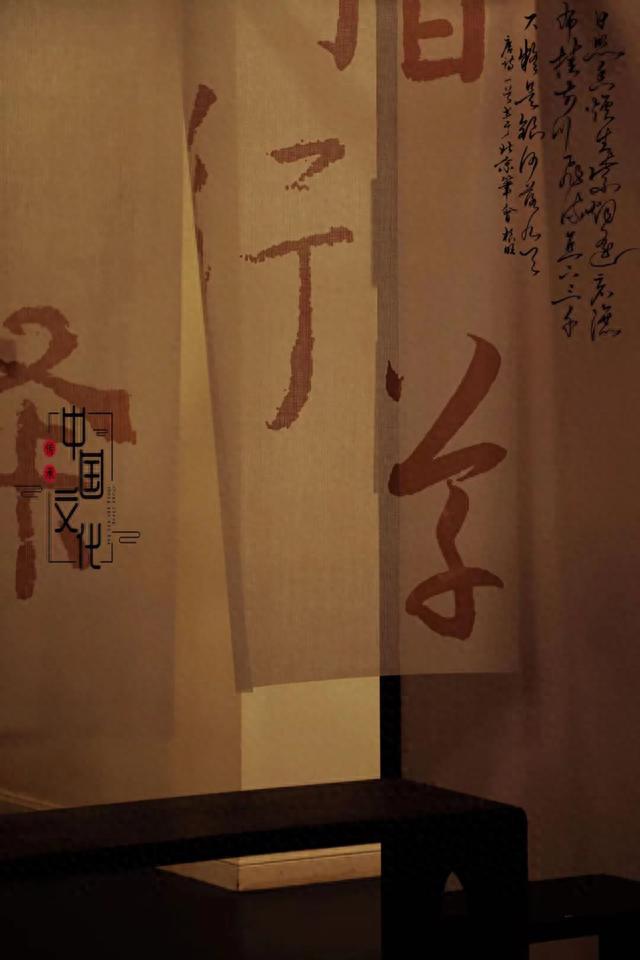 日照香炉生紫烟遥看瀑
布挂前川飞流直下三千
尺疑是银河落九天
唐诗一首书于北京笔会
行
学
中国文化
传承